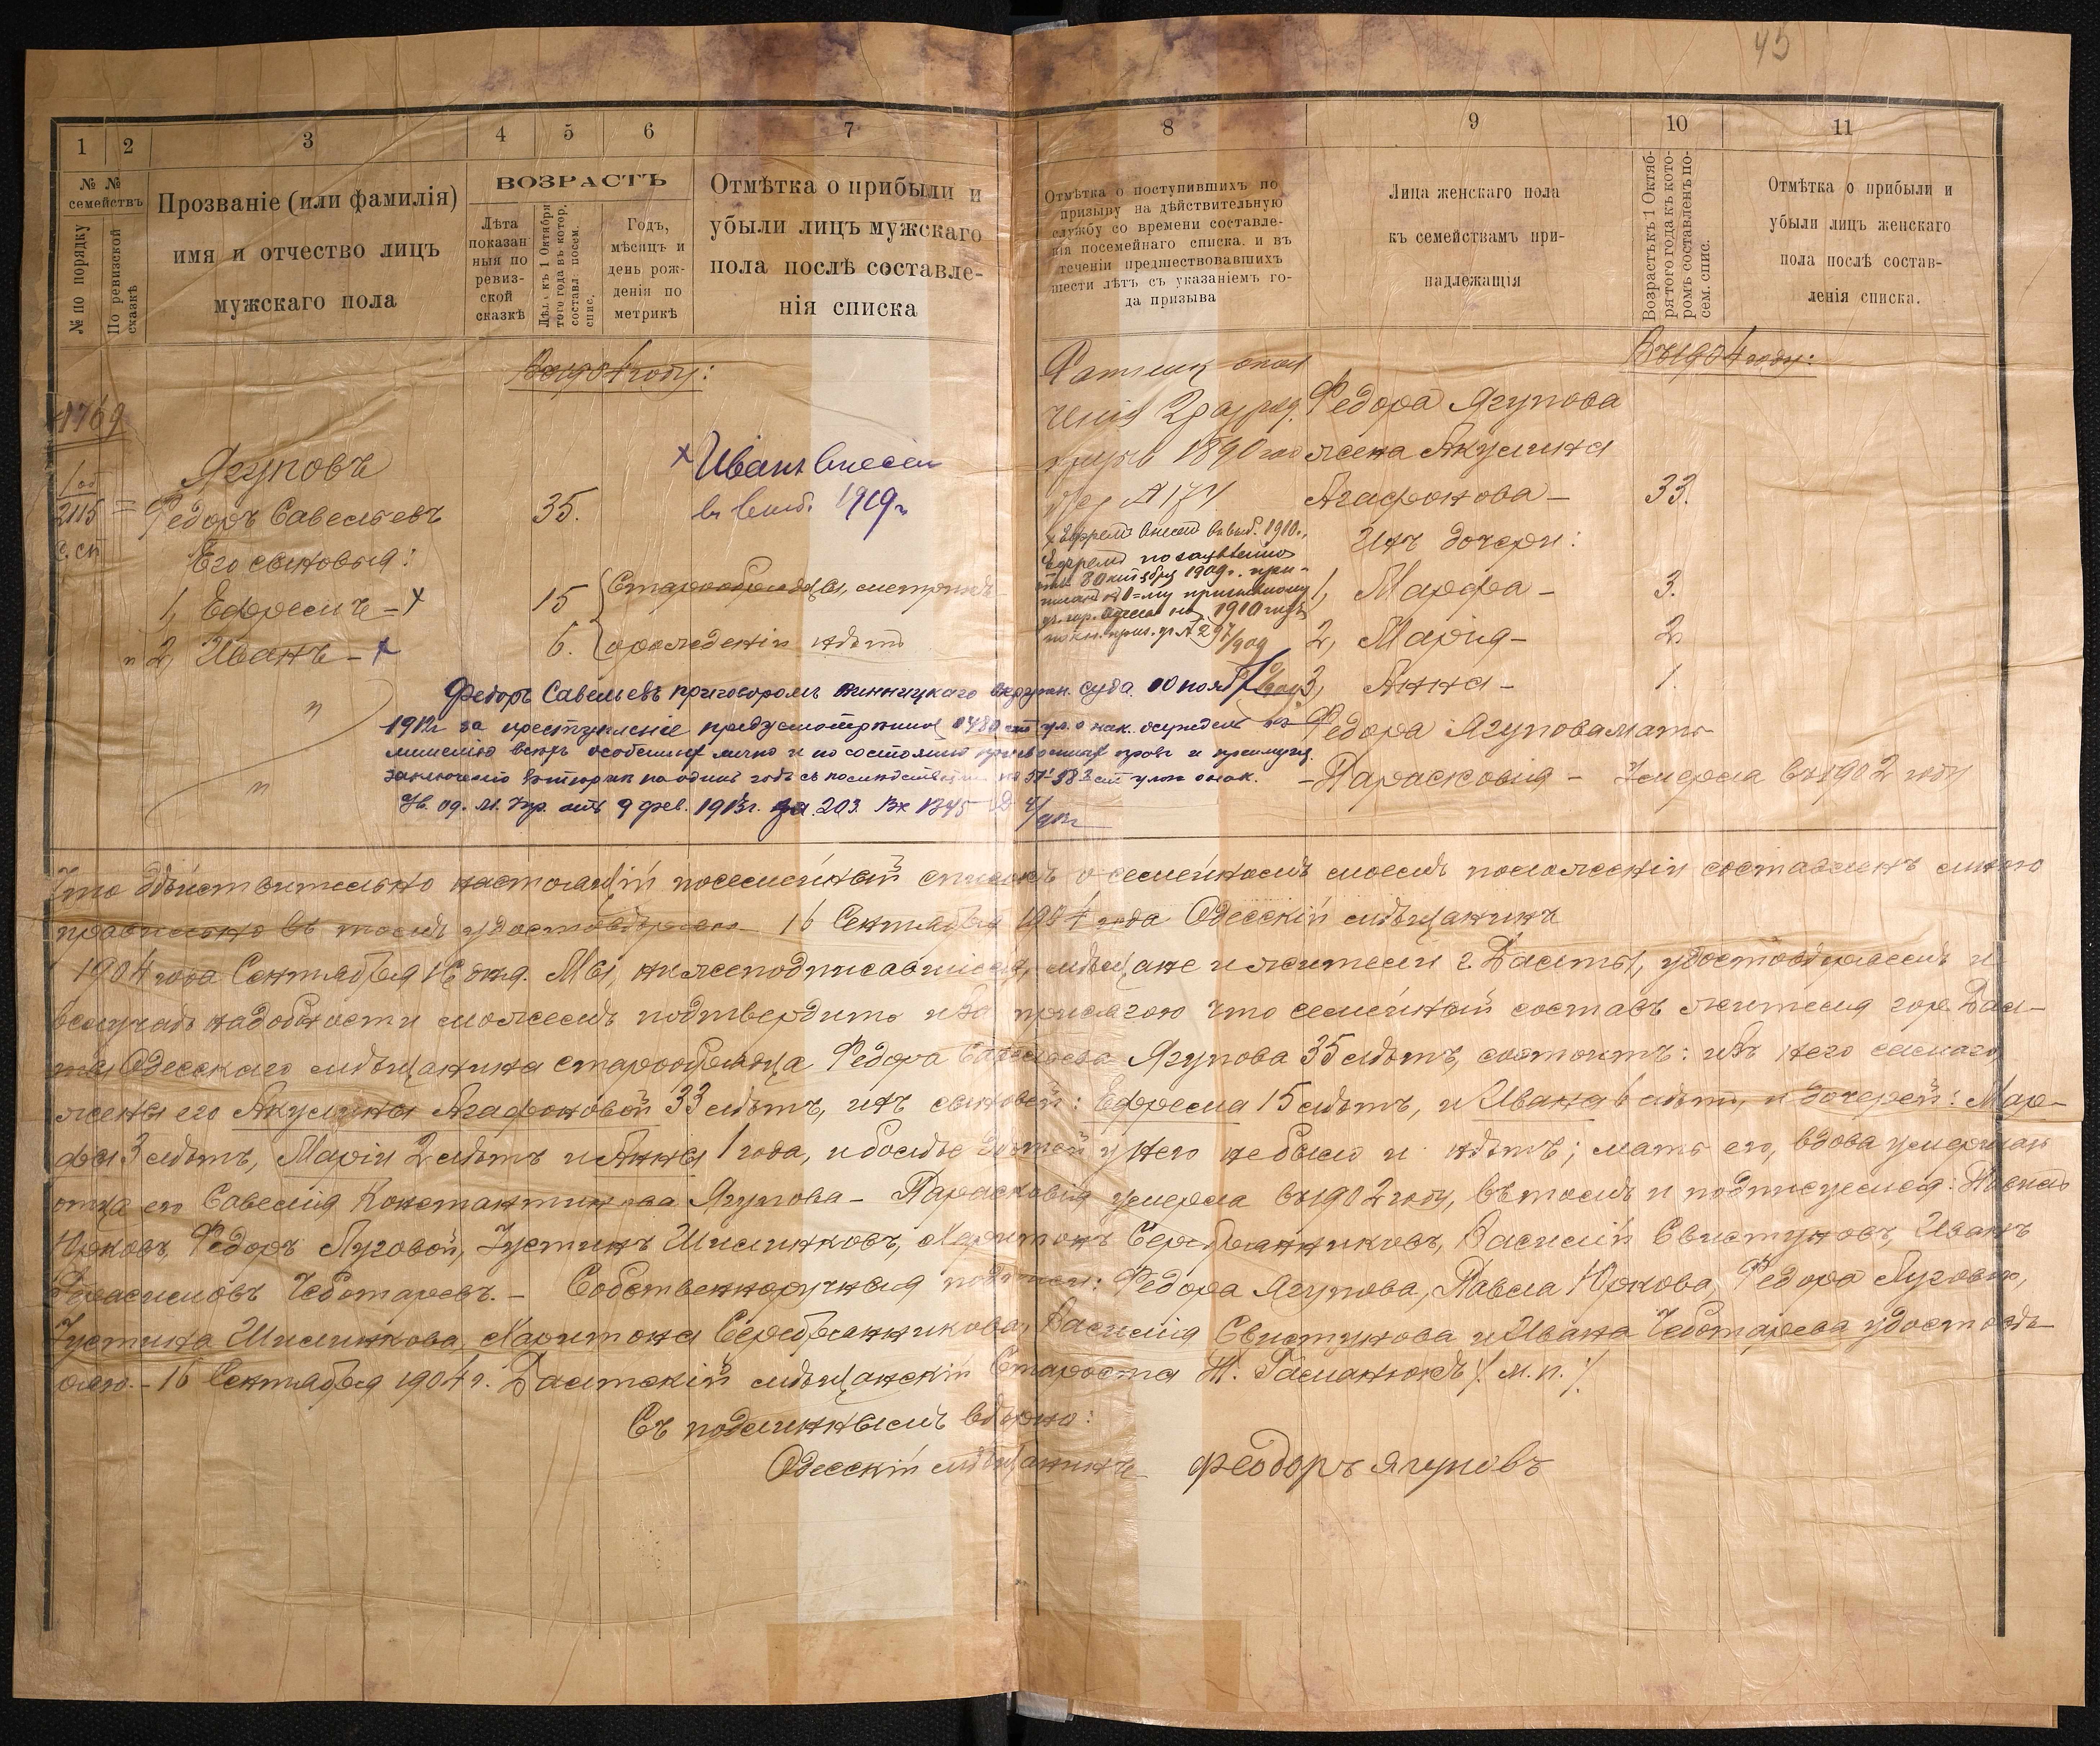 45
1
2
3
4
5
6
7
8
9
10
11
№ №
семействъ
№ по порядку
По ревизской сказкѣ
Прозваніе (или фамилія)
имя и отчество лицъ
мужскаго пола
ВОЗРАСТЪ
Лѣта
показан
ныя по
ревиз-
ской
сказкѣ
Лѣт. къ 1 Октября
того года въ котор.
составл. посем.
спис.
Годъ,
мѣсяцъ и
день рож-
денія по
метрикѣ
Отмѣтка о прибыли и
убыли лицъ мужскаго
пола послѣ составле-
нія списка
Отмѣтка о поступившихъ по
призыву на дѣйствительную
службу со времени составле-
нія посемейнаго списка, и въ
теченіи предшествовавшихъ
шести лѣтъ съ указаніемъ го-
да призыва
Лица женскаго пола
къ семействамъ при-
надлежащія
Возрастъ къ 1 Октяб-
ря того года къ кото-
ромъ составленъ по-
сем. спис.
Отмѣтка о прибыли и
убыли лицъ женскаго
пола послѣ состав-
ленія списка.
Въ 1904 году:
1769
Ягуповъ
2115
Федоръ Савельевъ
35.
Его сыновья:
1, Ефремъ - х
15
2, Иванъ - х
6.
х Иванъ внесен
1919 г
Старообрядцы, метрикъ
о рожденіи нѣтъ
Ратник опол
ченія 2 разряд.
1890 год
х Ефремъ внесенъ въ 1910 г.,
Ефремъ по заявленію
1909 г. при-
1910 году
Въ 1904 году:
Федора Ягупова
жена Акулина
Агафонова - 33.
Ихъ дочери:
1, Марфа - 3.
2, Марія - 2
3, Анна - 1.
Федора Ягупова мать
- Парасковія - Умерла въ 1902 году
Федоръ Савельевъ приговоромъ Винницкаго окружн. суда 10 нояб
1912 г за преступленіе предусмотрѣнное ул. о нак. осужденъ къ
лишенію всѣхъ особенныхъ лично и по состоянію присвоенныхъ правъ и преимущ.
заключенію въ тюрьмѣ на одинъ годъ съ послѣдствіями ст улож о нак.
отъ 9 фев. 1913 г. за 203. Вх
Что дѣйствительно настоящій посемейный списокъ о семейномъ моемъ положеніи составленъ мною
правильно въ томъ удостовѣряю 16 Сентября 1904 года Одесскій мѣщанинъ
1904 года Сентября 16 дня. Мы, нижеподписавшіеся, мѣщане и жители г. Балты, удостовѣряемъ и
въ случаѣ надобности можемъ подтвердить и подъ присягою что семейный составъ жителя гор. Бал-
ты Одесскаго мѣщанина старообрядца Федора Савельева Ягупова 35 лѣтъ, состоитъ: изъ него самаго,
жены его Акулины Агафоновой 33 лѣтъ, ихъ сыновей: Ефрема 15 лѣтъ, и Ивана 6 лѣтъ, и дочерей: Мар-
фы 3 лѣтъ, Маріи 2 лѣтъ и Анны 1 года, и болѣе дѣтей у него не было и нѣтъ; мать его, вдова умершаго
отца его Савелія Константинова Ягупова - Парасковія умерла въ 1902 году, въ томъ и подписуемся: Павелъ
Юрковъ, Федоръ Луговой, Устинъ Шилинковъ, Харитонъ Серебрянниковъ, Василій Свистуновъ, Иванъ
Герасимовъ Чеботаревъ. - Собственноручныя подписи: Федора Ягупова, Павла Юркова, Федора Лугового,
Устина Шилинкова, Харитона Серебрянникова, Василія Свистунова и Ивана Чеботарева удостовѣ-
ряю. - 16 Сентября 1904 г. Балтскій мѣщанскій Староста /м. п./
Съ подлиннымъ вѣрно:
Одесскій мѣщанинъ Феодоръ Ягуповъ